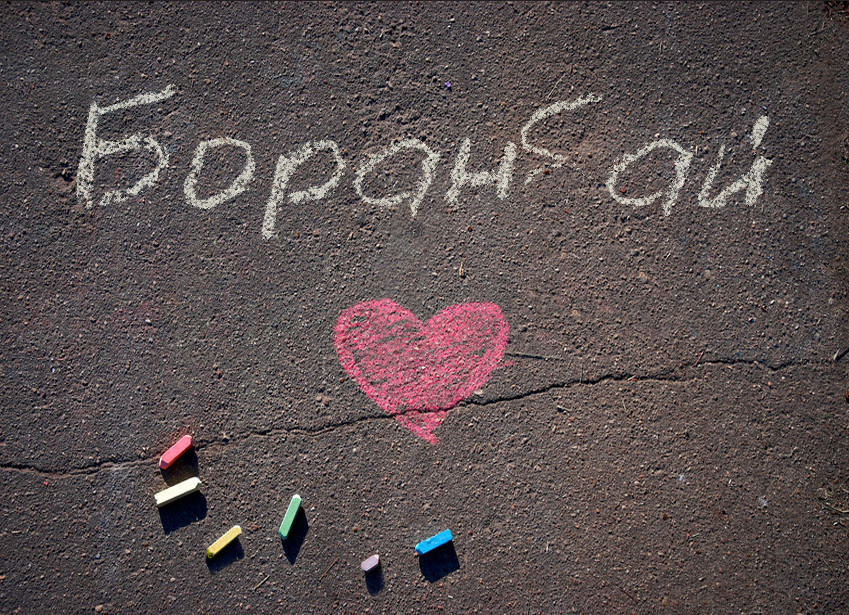 Боранбай